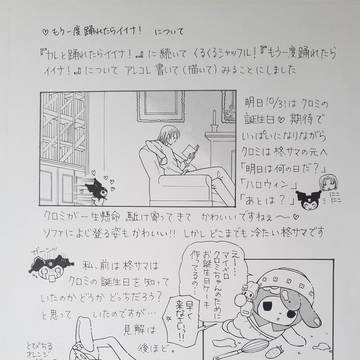 ♡もう一度踊れたらイイナ！ について
『カレと踊れたらイイナ！』に続いてくるくるシャッフル！『もう一度踊れたら
イイナ！』について アレコレ書いて(描いて)みることにしました
明日10/31はクロミの
誕生日♡期待で
いっぱいになりながら
クロミは柊サマの元へ
「明日は何の日だ？」
「ハロウィン」
「あとは？」
ニコ
ニコ
クロミが一生懸命 駆け寄ってきて かわいいですねぇ〜♡
ソファによじ登る姿もかわいい!! しかしどこまでも冷たい柊サマです
ガーン
私、前は柊サマは
クロミの誕生日を知って
いたのかどうか どっちだろう？
と思って いたのですが…
見解は
後ほど。
とびちる
オレンジ
えー
マイメロ
クロミちゃんのために
お誕生日ケーキ
作ってるの
早く
来なさい!!